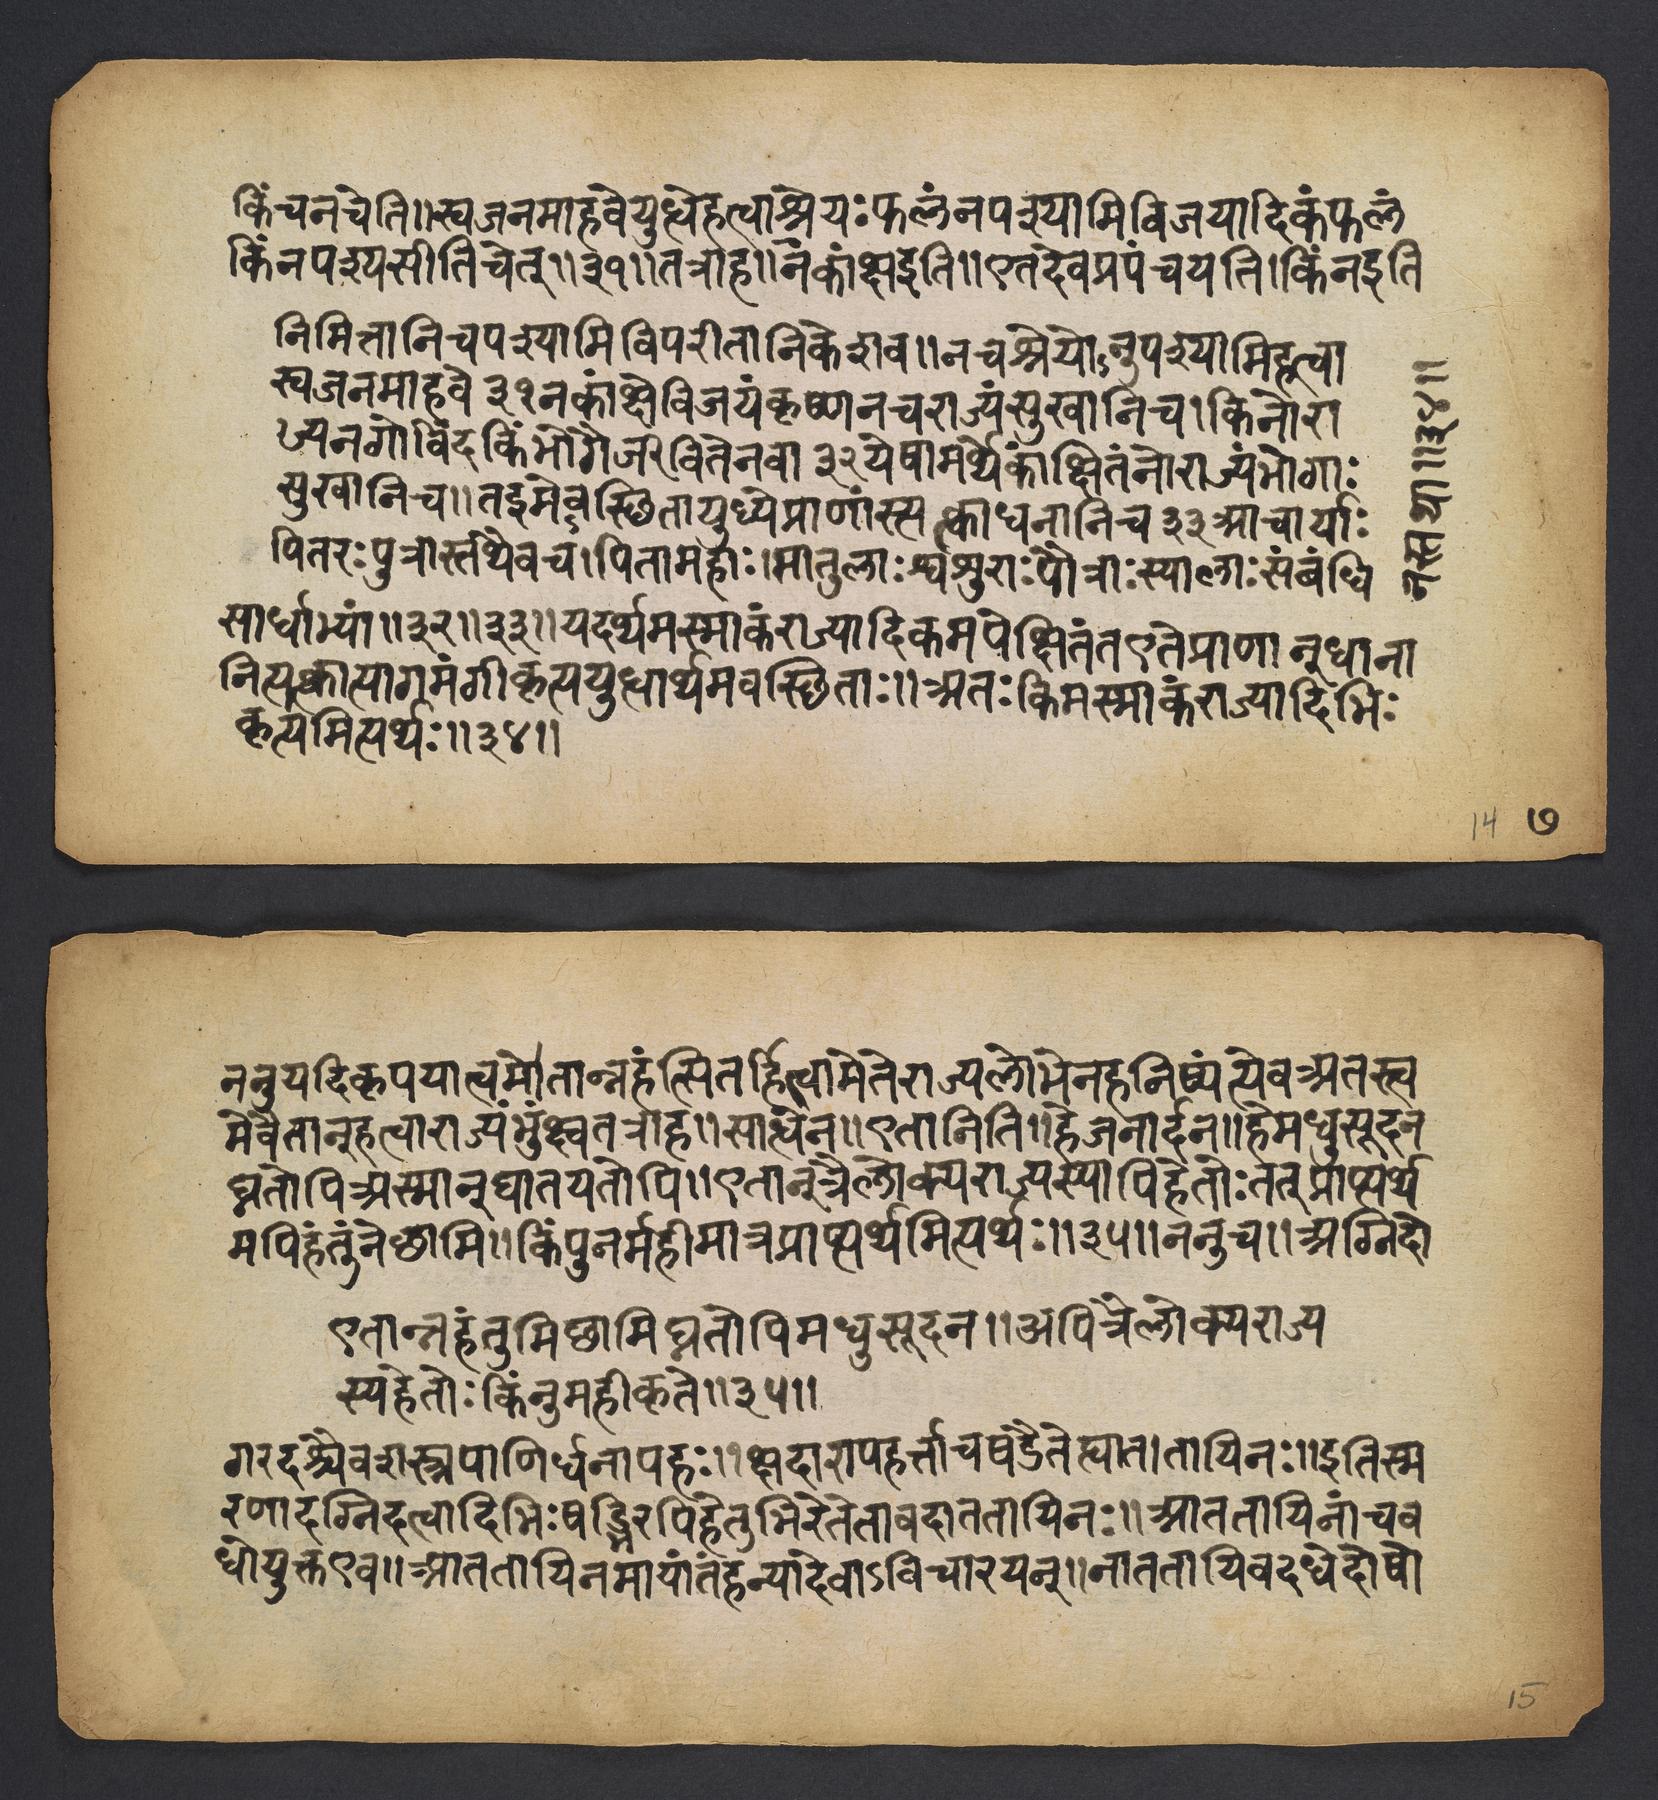 किंचनचेति॥स्वजनमाहवेयुध्धेहत्वाश्रेयःफलंनपश्यामिविजयादिकंफलं
किंनपश्यसीतिचेत्॥३१॥तत्राह॥नकांक्षइति॥एतदेवप्रपंचयति।किंनइति
निमित्तानिचपश्यामिविपरीतानिकेशव॥नचश्रेयोऽनुपश्यामिहत्वा
स्वजनमाहवे ३१नकांक्षेविजयंकृष्णनचराज्यंसुखानिच।किंनोरा
ज्येनगोविंदकिंभोगैर्जीवितेनवा ३२येषामर्थेकांक्षितंनोराज्यंभोगाः
सुखानिच॥तइमेवस्छितायुध्धेप्राणांस्त्यक्त्काधनानिच ३३आचार्याः
पितरःपुत्रास्तथैवचपितामहाः।मातुलाःश्वशुराःपौत्राःस्यालाःसंबंधि
नस्तथा॥३४॥
सार्धाभ्यां॥३२॥३३॥यदर्थमस्माकंराज्यादिकमपेक्षितंतएतेप्राणान्धाना
नित्यत्कात्यागमंगीकृत्ययुध्धार्थमवस्छिताः॥अतःकिमस्माकंराज्यादिभिः
कृत्यमित्यर्थः॥३४॥
14 ७
ननुयदिकृपयात्वमेतान्नहंत्सितर्हित्वामेतेराज्यलोभेनहनिष्यंत्येवअतस्त्व
मेवैतान्हत्वाराज्यंभुंक्ष्वतत्राह॥सार्धेन॥एतानिति॥हेजनार्दन॥हेमधुसूदन
घ्नतोपिअस्मान्घातयतोपि॥एतान्त्रैलोक्यराज्यस्यापिहेतोःतत्प्राप्त्यर्थ
मपिहंतुंनेछामि॥किंपुनर्महीमात्रप्राप्त्यर्थमित्यर्थः॥३५॥ननुच॥अग्निदो
एतान्नहंतुमिछामिघ्नतोपिमधुसूदन॥अपित्रैलोक्यराज्य
स्यहेतोःकिंनुमहीकृते॥३५॥
गरदश्चैवशस्त्रपाणिर्धनापहः॥क्षदारापहर्त्ताचषडैतेह्याततायिनः॥इतिस्म
रणादग्निदत्वादिभिःषड्भिरपिहेतुभिरेतेतावदाततायिनः॥आततायिनांचव
धोयुक्तएव॥आततायिनमायांतंहन्यादेवाऽविचारयन्॥नाततायिवदधेदोषो
15